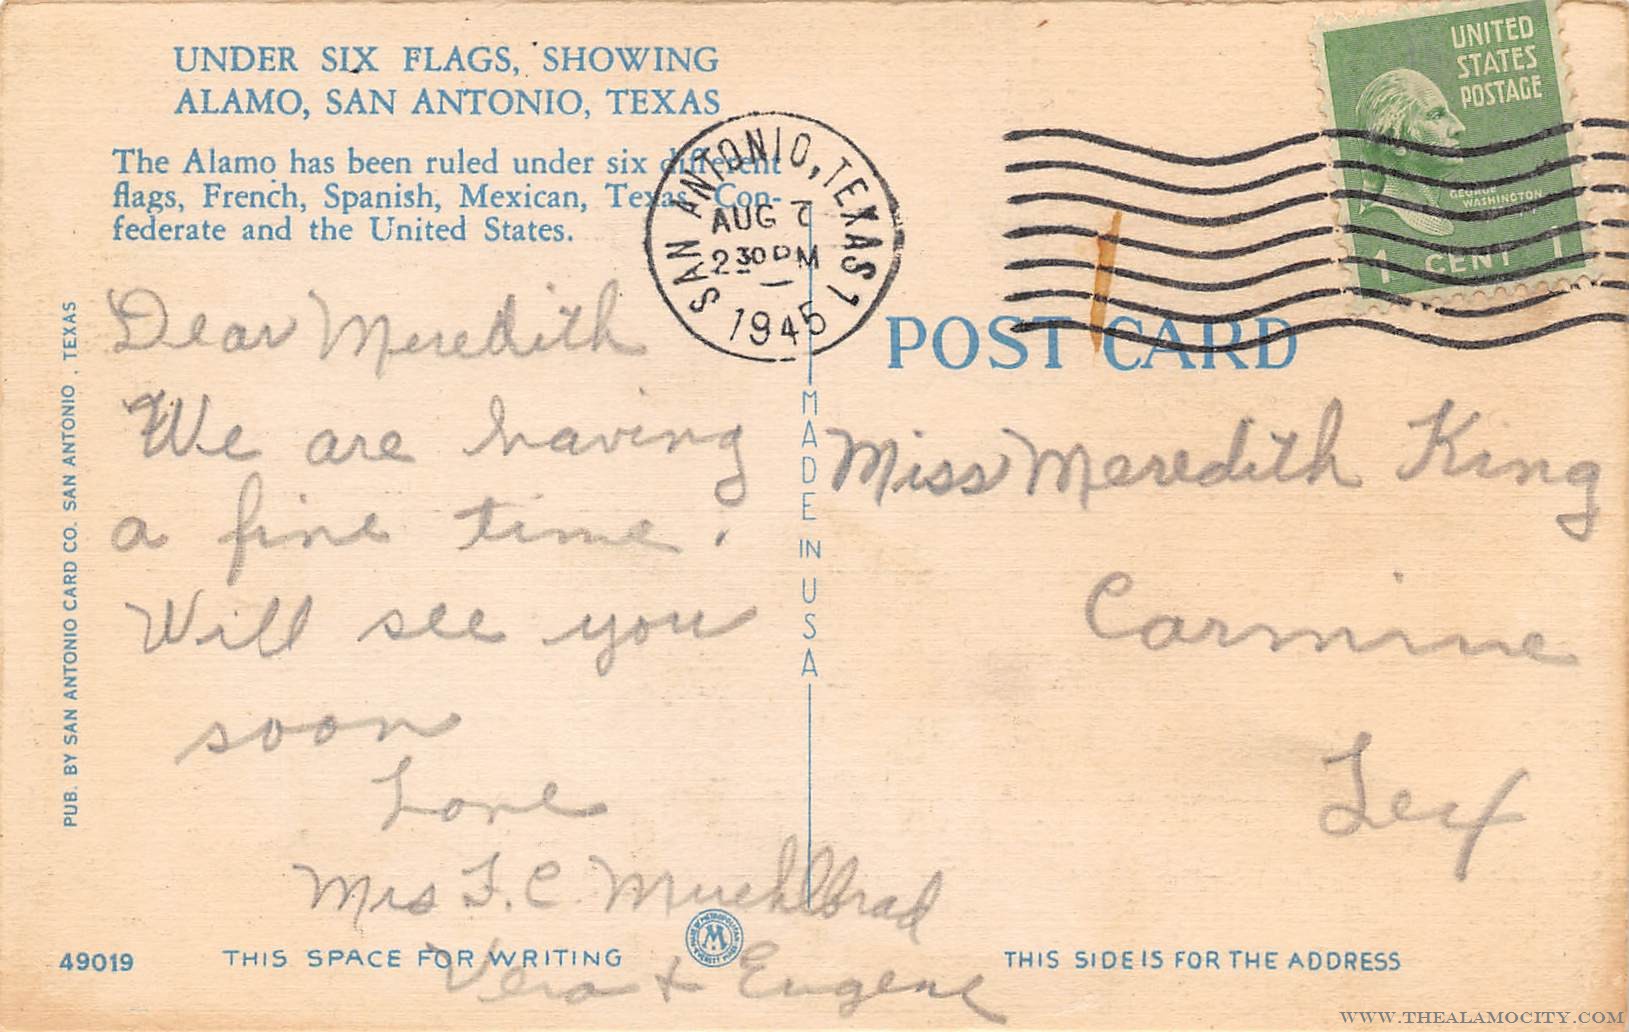 UNDER SIX FLAGS, SHOWING
ALAMO, SAN ANTONIO, TEXAS
The Alamo has been ruled under six different
flags, French, Spanish, Mexican, Texas, Con-
federate and the United States.
SAN ANTONIO, TEXAS 1
AUG 7
2 30 PM
1945
UNITED
STATES
POSTAGE
GEORGE
WASHINGTON
1 CENT 1
POST CARD
Dear Meredith
We are having
a fine time.
Will see you
soon
Love
Mrs F. C. Muehlbrad
Vera + Eugene
MADE IN USA
Miss Meredith King
Carmine
Tex
PUB. BY SAN ANTONIO CARD CO. SAN ANTONIO, TEXAS
49019
THIS SPACE FOR WRITING
M
THIS SIDE IS FOR THE ADDRESS
WWW.THEALAMOCITY.COM